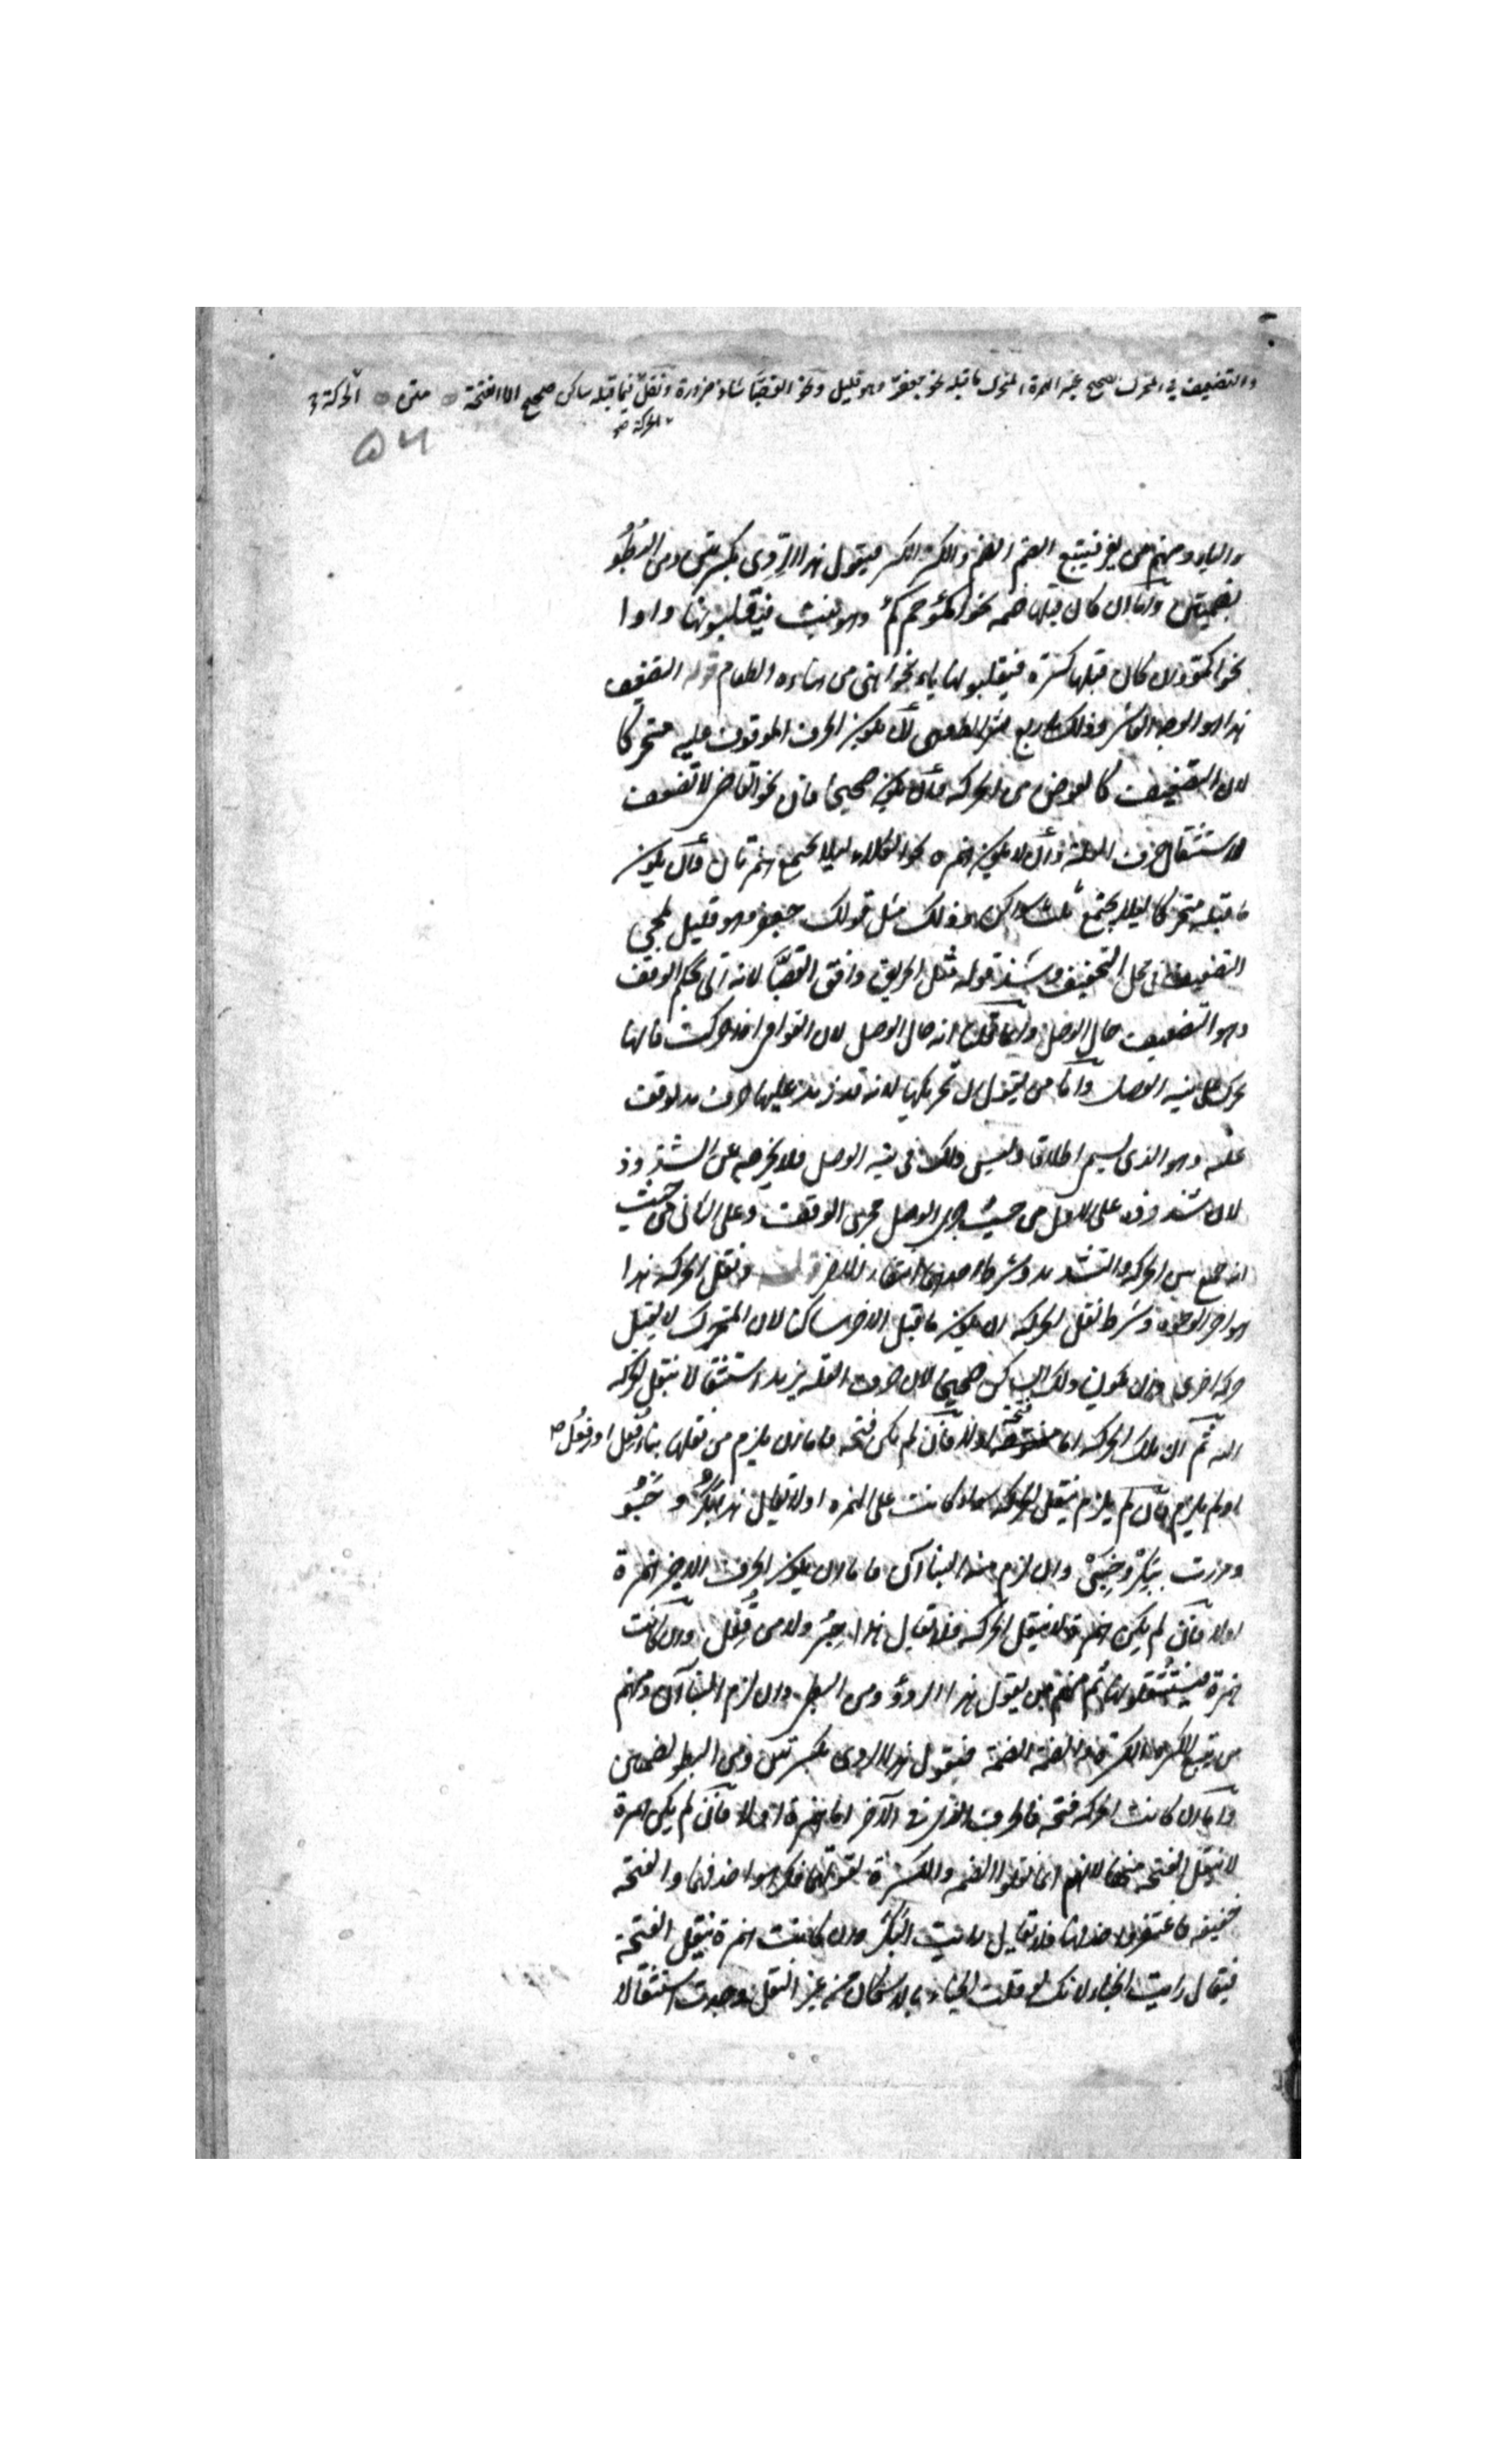 والتضعيف في المتحرك الصحيح غير الهمزة المتحرك ما قبله نحو جعفرّ وهو قليل ونحو القصبّا شاذ ضرورة ونقل فيما قبله ساكن صحيح الا الفتحة متن الحركة
الحركة صح
۵۲
والياء ومنهم من يفر فيتبع الضم الضم والكسر الكسر فيقول هذا الرِدِى بكسرتين ومن البُطُو
بضمتين وأما ان كان قبلها ضمة نحو اكمُؤ جمع كمْء وهو نبت فيقلبونها واوا
نحو اكمُو وان كان قبلها كسرة فيقلبونها ياء نحو اهنى من هناءه الطعام قوله التضعيف
هذا هو الوجه العاشر وذلك باربع شرائط هي أن يكون الحرف الموقوف عليه متحركا
لان التضعيف كالعوض من الحركة وأن يكون صحيحا فان نحو القاضي لا تضعف
لاستثقال حرف العلة وأن لا يكون همزة نحو الكلاء ليلا يجتمع همزتان وأن يكون
ما قبله متحركا ليلا يجتمع ثلث سواكن وذلك مثل قولك جعفر وهو قليل لمجى
التضعيف في محل التخفيف وشذ قوله مثل الحريق وافق القصبّا لانه اتى بحكم الوقف
وهو التضعيف حال الوصل وانما قلنا انه حال الوصل لان القوافي اذا حركت فانها
تحرك على نية الوصل وأما من يقول ان تحريكها لانه قد زيد عليها حرف مد لوقف
عليه وهو الذي يسمى اطلاقا وليس ذلك في نية الوصل فلا يخرجه عن الشذوذ
لان شذوذه على الاول من حيث اجرى الوصل مجرى الوقف وعلى الثاني من حيث
انه جمع بين الحركة والتشديد وشرط احدهما انتفاء الاخر قوله ونقل الحركة هذا
هو اخر الوجوه وشرط نقل الحركة ان يكون ما قبل الاخر ساكنا لان المتحرك لا يقبل
حركة اخرى وان يكون ذلك الساكن صحيحا لان حرف العلة يزيد استثقالا بنقل الحركة
اليه ثم ان تلك الحركة اما فتحة اولا فان لم يكن فتحة فاما ان يلزم من نقلها بناء فُعِل او فِعُل
او لم يلزم فان لم يلزم فينقل الحركة سواء كانت على الهمزة اولا يقال هذا بكُر و خبُو
ومررت ببكِر وخبِى وان لزم هذا البنا آن فاما ان يكون الحرف الاخير همزة
اولا فان لم يكن همزة لا ينقل الحركة فلا يقال هذا حِبُر ولا من قُفِل وان كانت
همزة فيستثقلونها ثم منهم من يقول هذا الردؤ ومن البطئ وان لزم البنا آن ومنهم
من يتبع الكسرة الكسرة والضمة الضمة فيقول هذا الردى بكسرتين ومن البطو بضمتين
وأما ان كانت الحركة فتحة فالحرف الذي في الآخر اما همزة اولا فان لم يكن همزة
لا ينقل الفتحة منها لانهم انما نقلوا الضمة والكسرة لقوتهما فكرهوا حذفهما والفتحة
خفيفة فاغتفروا حذفها فلا يقال رايت البكَر وان كانت همزة ينقل الفتحة
فيقال رايت الخبا لانك لو قلت الخبء بالاسكان من غير النقل لوجدت استثقالا